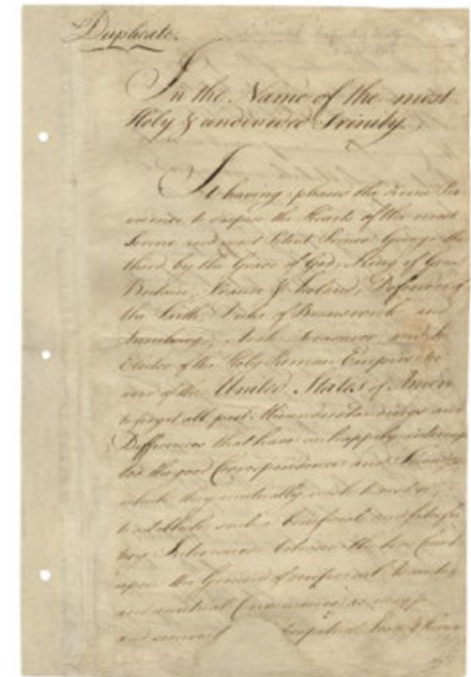 Duplicate.
In the Name of the most
Holy & undivided Trinity.
It having pleased the divine Pro
vidence to dispose the Hearts of the most
Serene and most Potent Prince George the
third by the Grace of God, King of Great
Britain, France & Ireland, Defender of
the Faith, Duke of Brunswick and
Lunebourg, Arch Treasurer and
Elector of the Holy Roman Empire &c
and of the United States of Amer
to forget all past Misunderstandings and
Differences that have unhappily interrup
ted the good Correspondence and Friendship
which they mutually wish to restore;
to establish such a beneficial and satisfac
tory Intercourse between the two Countries
upon the Ground of reciprocal Advantages
and mutual Convenience as may
and secure Perpetual Peace &